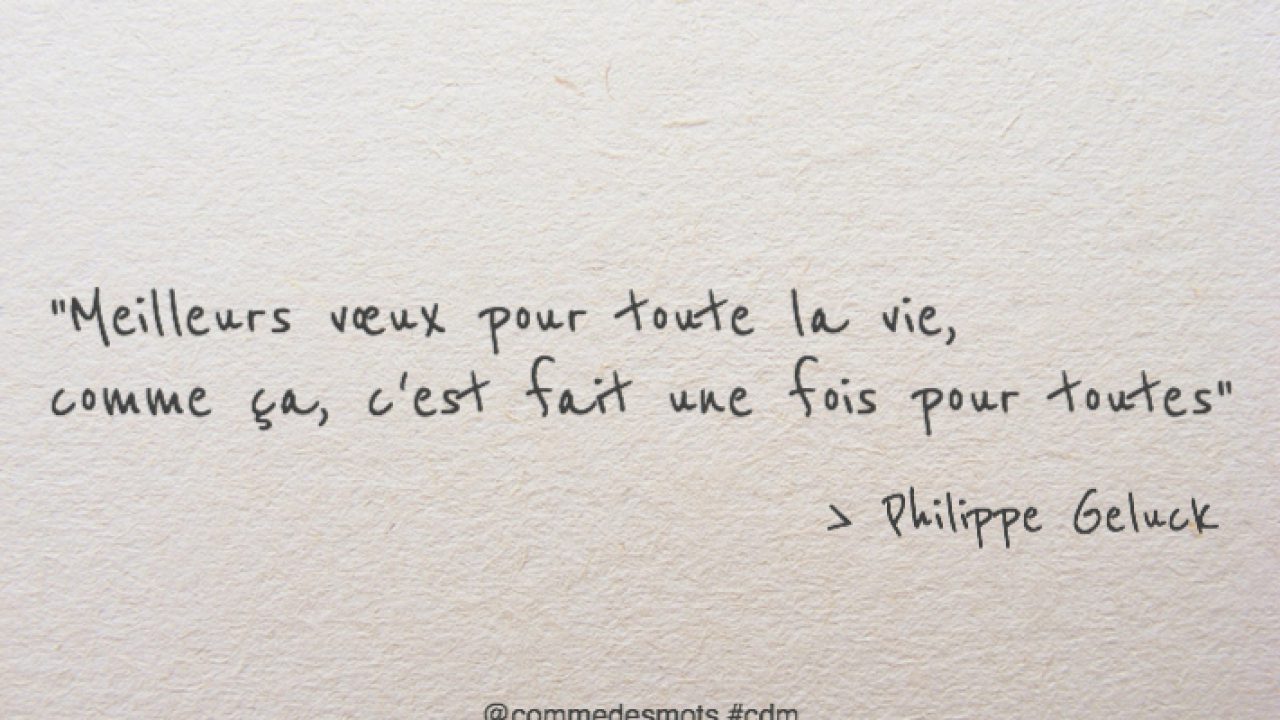 "Meilleurs vœux pour toute la vie,
comme ça, c'est fait une fois pour toutes"
> Philippe Geluck
@commedesmots #cdm